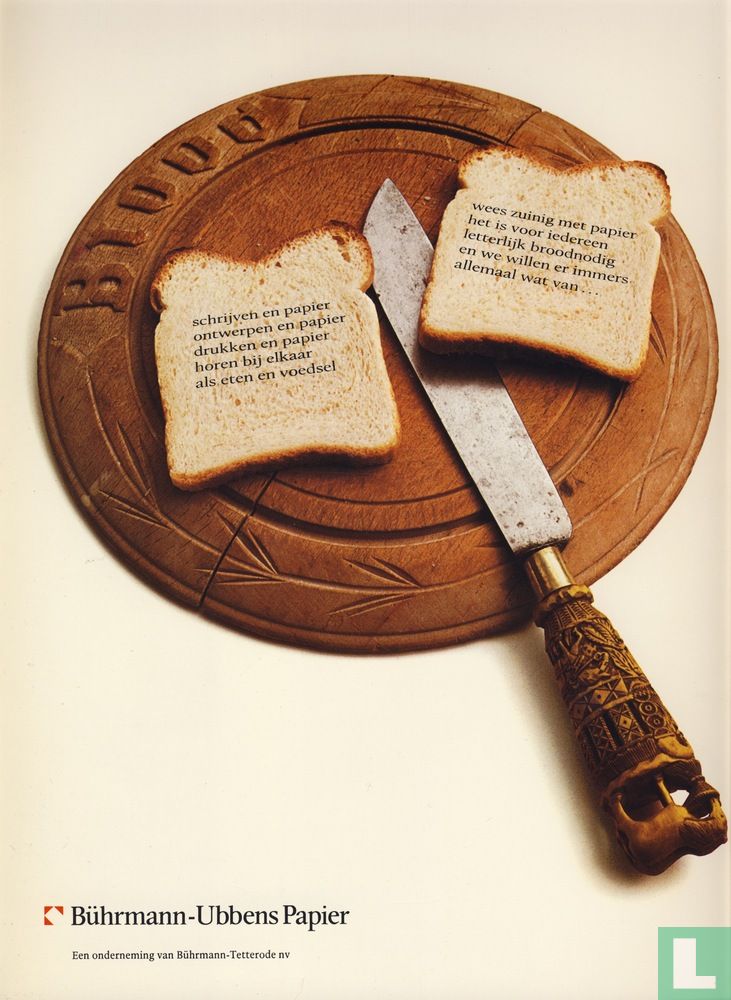 Brood
schrijven en papier
ontwerpen en papier
drukken en papier
horen bij elkaar
als eten en voedsel
wees zuinig met papier
het is voor iedereen
letterlijk broodnodig
en we willen er immers
allemaal wat van ...
Bührmann-Ubbens Papier
Een onderneming van Bührmann-Tetterode nv
L